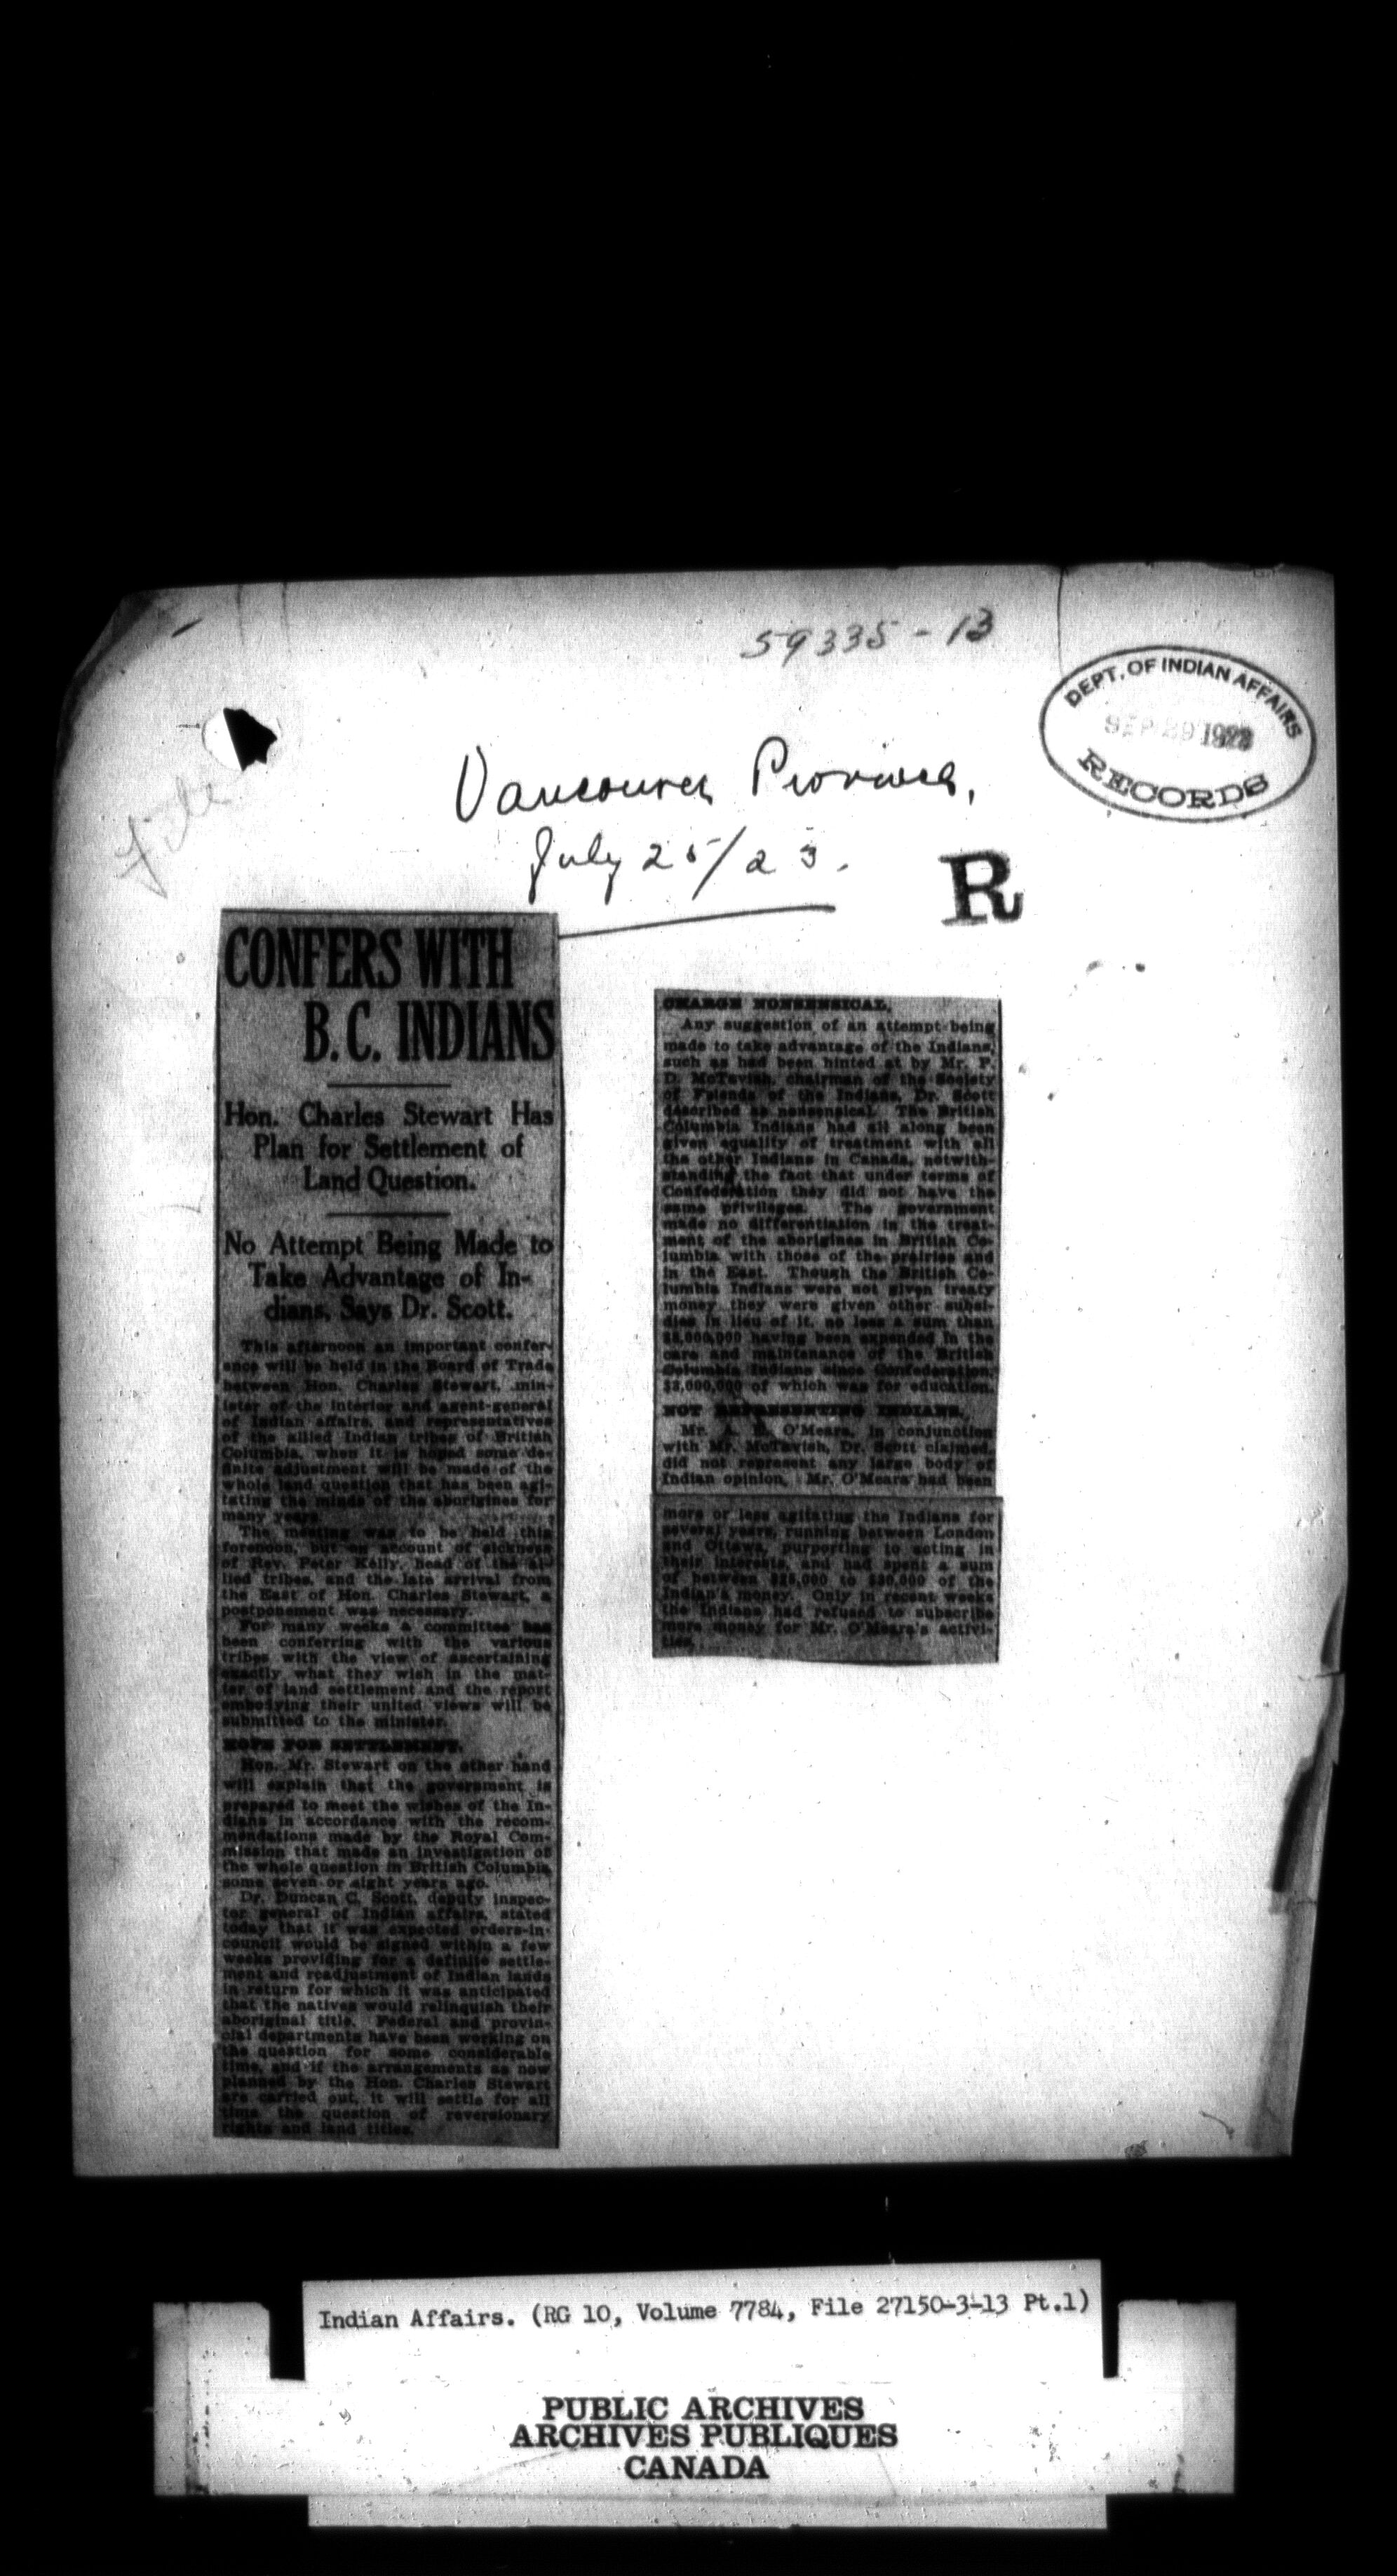 59335-13
DEPT. OF INDIAN AFFAIRS
SEP 29 1923
RECORDS
Vancouver Province,
July 25/23.
R
File
CONFERS WITH
B.C. INDIANS
Hon. Charles Stewart Has
Plan for Settlement of
Land Question.
No Attempt Being Made to
Take Advantage of In-
dians, Says Dr. Scott.
This afternoon an important confer-
ence will be held in the Board of Trade
between Hon. Charles Stewart, min-
ister of the interior and agent-general
of Indian affairs, and representatives
of the allied Indian tribes of British
Columbia, when it is hoped some de-
finite adjustment will be made of the
whole land question that has been agi-
tating the minds of the aborigines for
many years.
The meeting was to be held this
forenoon, but on account of sickness
of Rev. Peter Kelly, head of the al-
lied tribes, and the late arrival from
the East of Hon. Charles Stewart, a
postponement was necessary.
For many weeks a committee has
been conferring with the various
tribes with the view of ascertaining
exactly what they wish in the mat-
ter of land settlement and the report
embodying their united views will be
submitted to the minister.
HOPE FOR SETTLEMENT.
Hon. Mr. Stewart on the other hand
will explain that the government is
prepared to meet the wishes of the In-
dians in accordance with the recom-
mendations made by the Royal Com-
mission that made an investigation of
the whole question in British Columbia
some seven or eight years ago.
Dr. Duncan C. Scott, deputy inspec-
tor general of Indian affairs, stated
today that it was expected orders-in-
council would be signed within a few
weeks providing for a definite settle-
ment and readjustment of Indian lands
in return for which it was anticipated
that the natives would relinquish their
aboriginal title. Federal and provin-
cial departments have been working on
the question for some considerable
time, and if the arrangements as now
planned by the Hon. Charles Stewart
are carried out, it will settle for all
time the question of reversionary
rights and land titles.
CHARGE NONSENSICAL.
Any suggestion of an attempt being
made to take advantage of the Indians,
such as had been hinted at by Mr. P.
D. McTavish, chairman of the Society
of Friends of the Indians, Dr. Scott
described as nonsensical. The British
Columbia Indians had all along been
given equality of treatment with all
the other Indians in Canada, notwith-
standing the fact that under terms of
Confederation they did not have the
same privileges. The government
made no differentiation in the treat-
ment of the aborigines in British Co-
lumbia with those of the prairies and
in the East. Though the British Co-
lumbia Indians were not given treaty
money they were given other subsi-
dies in lieu of it, no less a sum than
having been expended in the
care and maintenance of the British
Columbia Indians since Confederation,
$3,000,000 of which was for education.
NOT REPRESENTING INDIANS.
Mr. A. E. O'Meara, in conjunction
with Mr. McTavish, Dr. Scott claimed,
did not represent any large body of
Indian opinion. Mr. O'Meara had been
more or less agitating the Indians for
several years, running between London
and Ottawa, purporting to acting in
their interests, and had spent a sum
of between $25,000 to $30,000 of the
Indian's money. Only in recent weeks
the Indians had refused to subscribe
more money for Mr. O'Meara's activi-
ties.
Indian Affairs. (RG 10, Volume 7784, File 27150-3-13 Pt.1)
PUBLIC ARCHIVES
ARCHIVES PUBLIQUES
CANADA